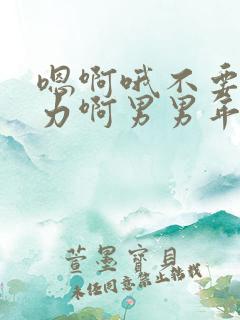 嗯啊哦不要
力啊男男年
萱墨寶貝
未经同意禁止转载